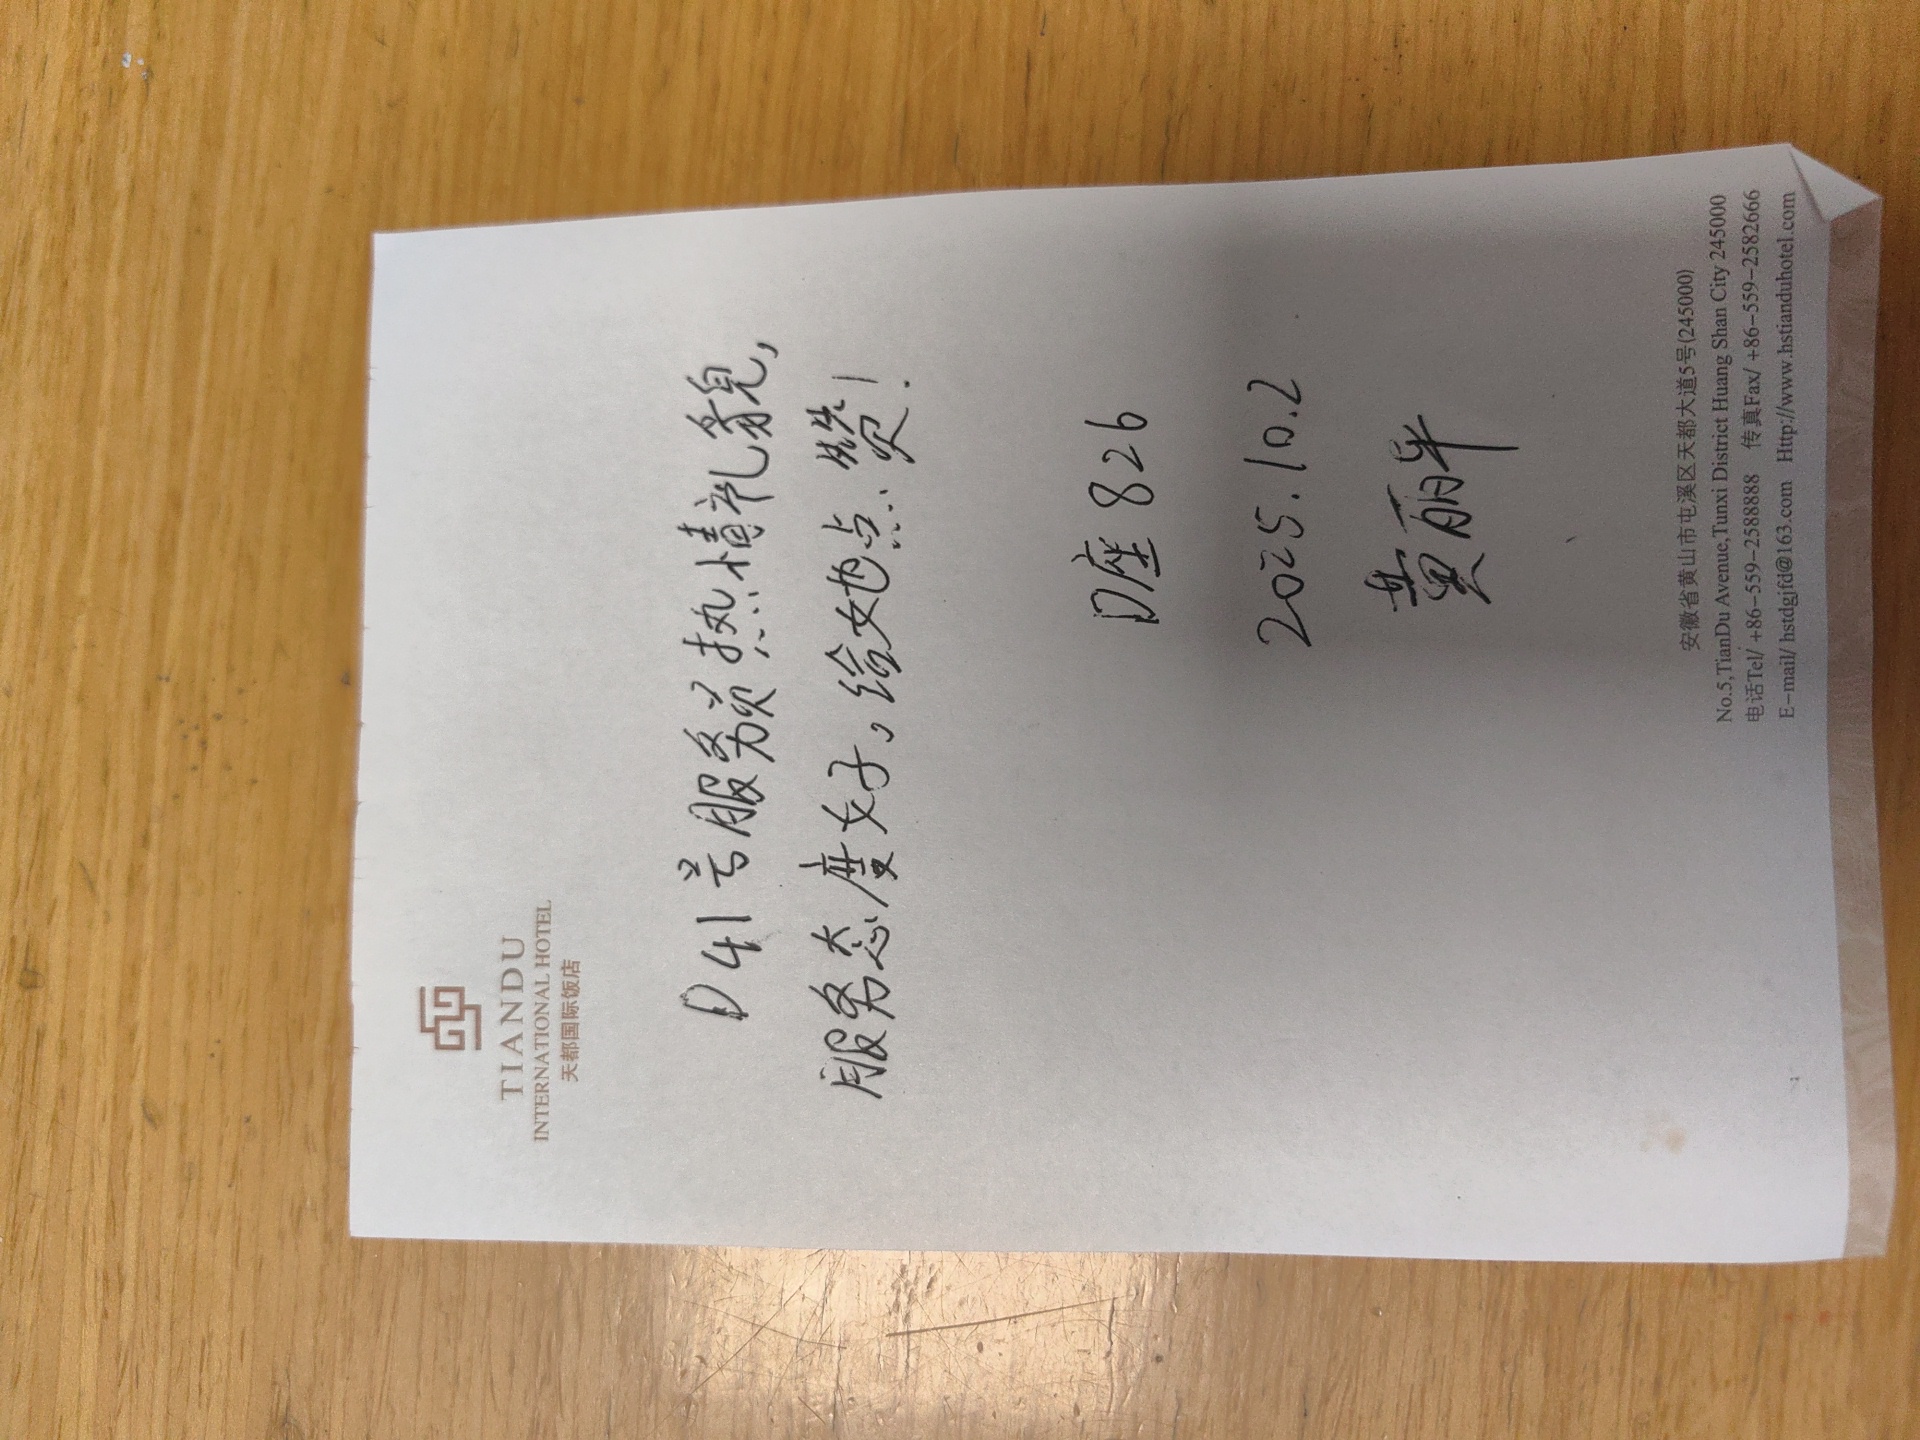 TIANDU
INTERNATIONAL HOTEL
天都国际饭店
D41号服务员热情礼貌,
服务态度好。给她点赞!
D座826
2025.10.2
黄丽华
安徽省黄山市屯溪区天都大道5号(245000)
No.5,TianDu Avenue,Tunxi District Huang Shan City 245000
电话Tel/ +86-559-2588888 传真Fax/ +86-559-2582666
E-mail/ hstdgjfd@163.com Http://www.hstianduhotel.com